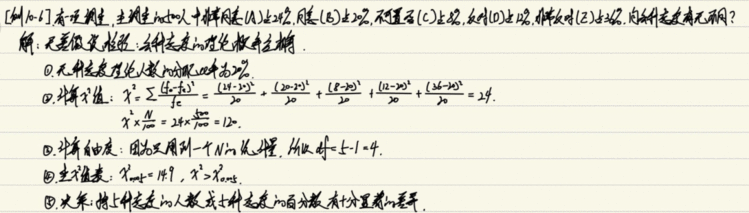 [例10-6]有一项调查,主调查的500人中非常同意(A)占24%,同意(B)占20%,不置可否(C)占8%,反对(D)占12%,非常反对(E)占36%,问各种态度有无不同?
解:无差假设检验:各种态度的理论概率相等.
①.各种态度理论人数的分配比率为20%.
②.计算χ²值:χ²=∑(f₀-fe)²/fe=(24-20)²/20+(20-20)²/20+(8-20)²/20+(12-20)²/20+(36-20)²/20=24.
χ²×N/100=24×500/100=120.
③.计算自由度:因为只用到一个N的统计量,所以df=5-1=4.
④.查χ²值表:χ²0.005=14.9,χ²>χ²0.005.
⑤.决策:持5种态度的人数或5种态度的百分数有十分显著的差异.